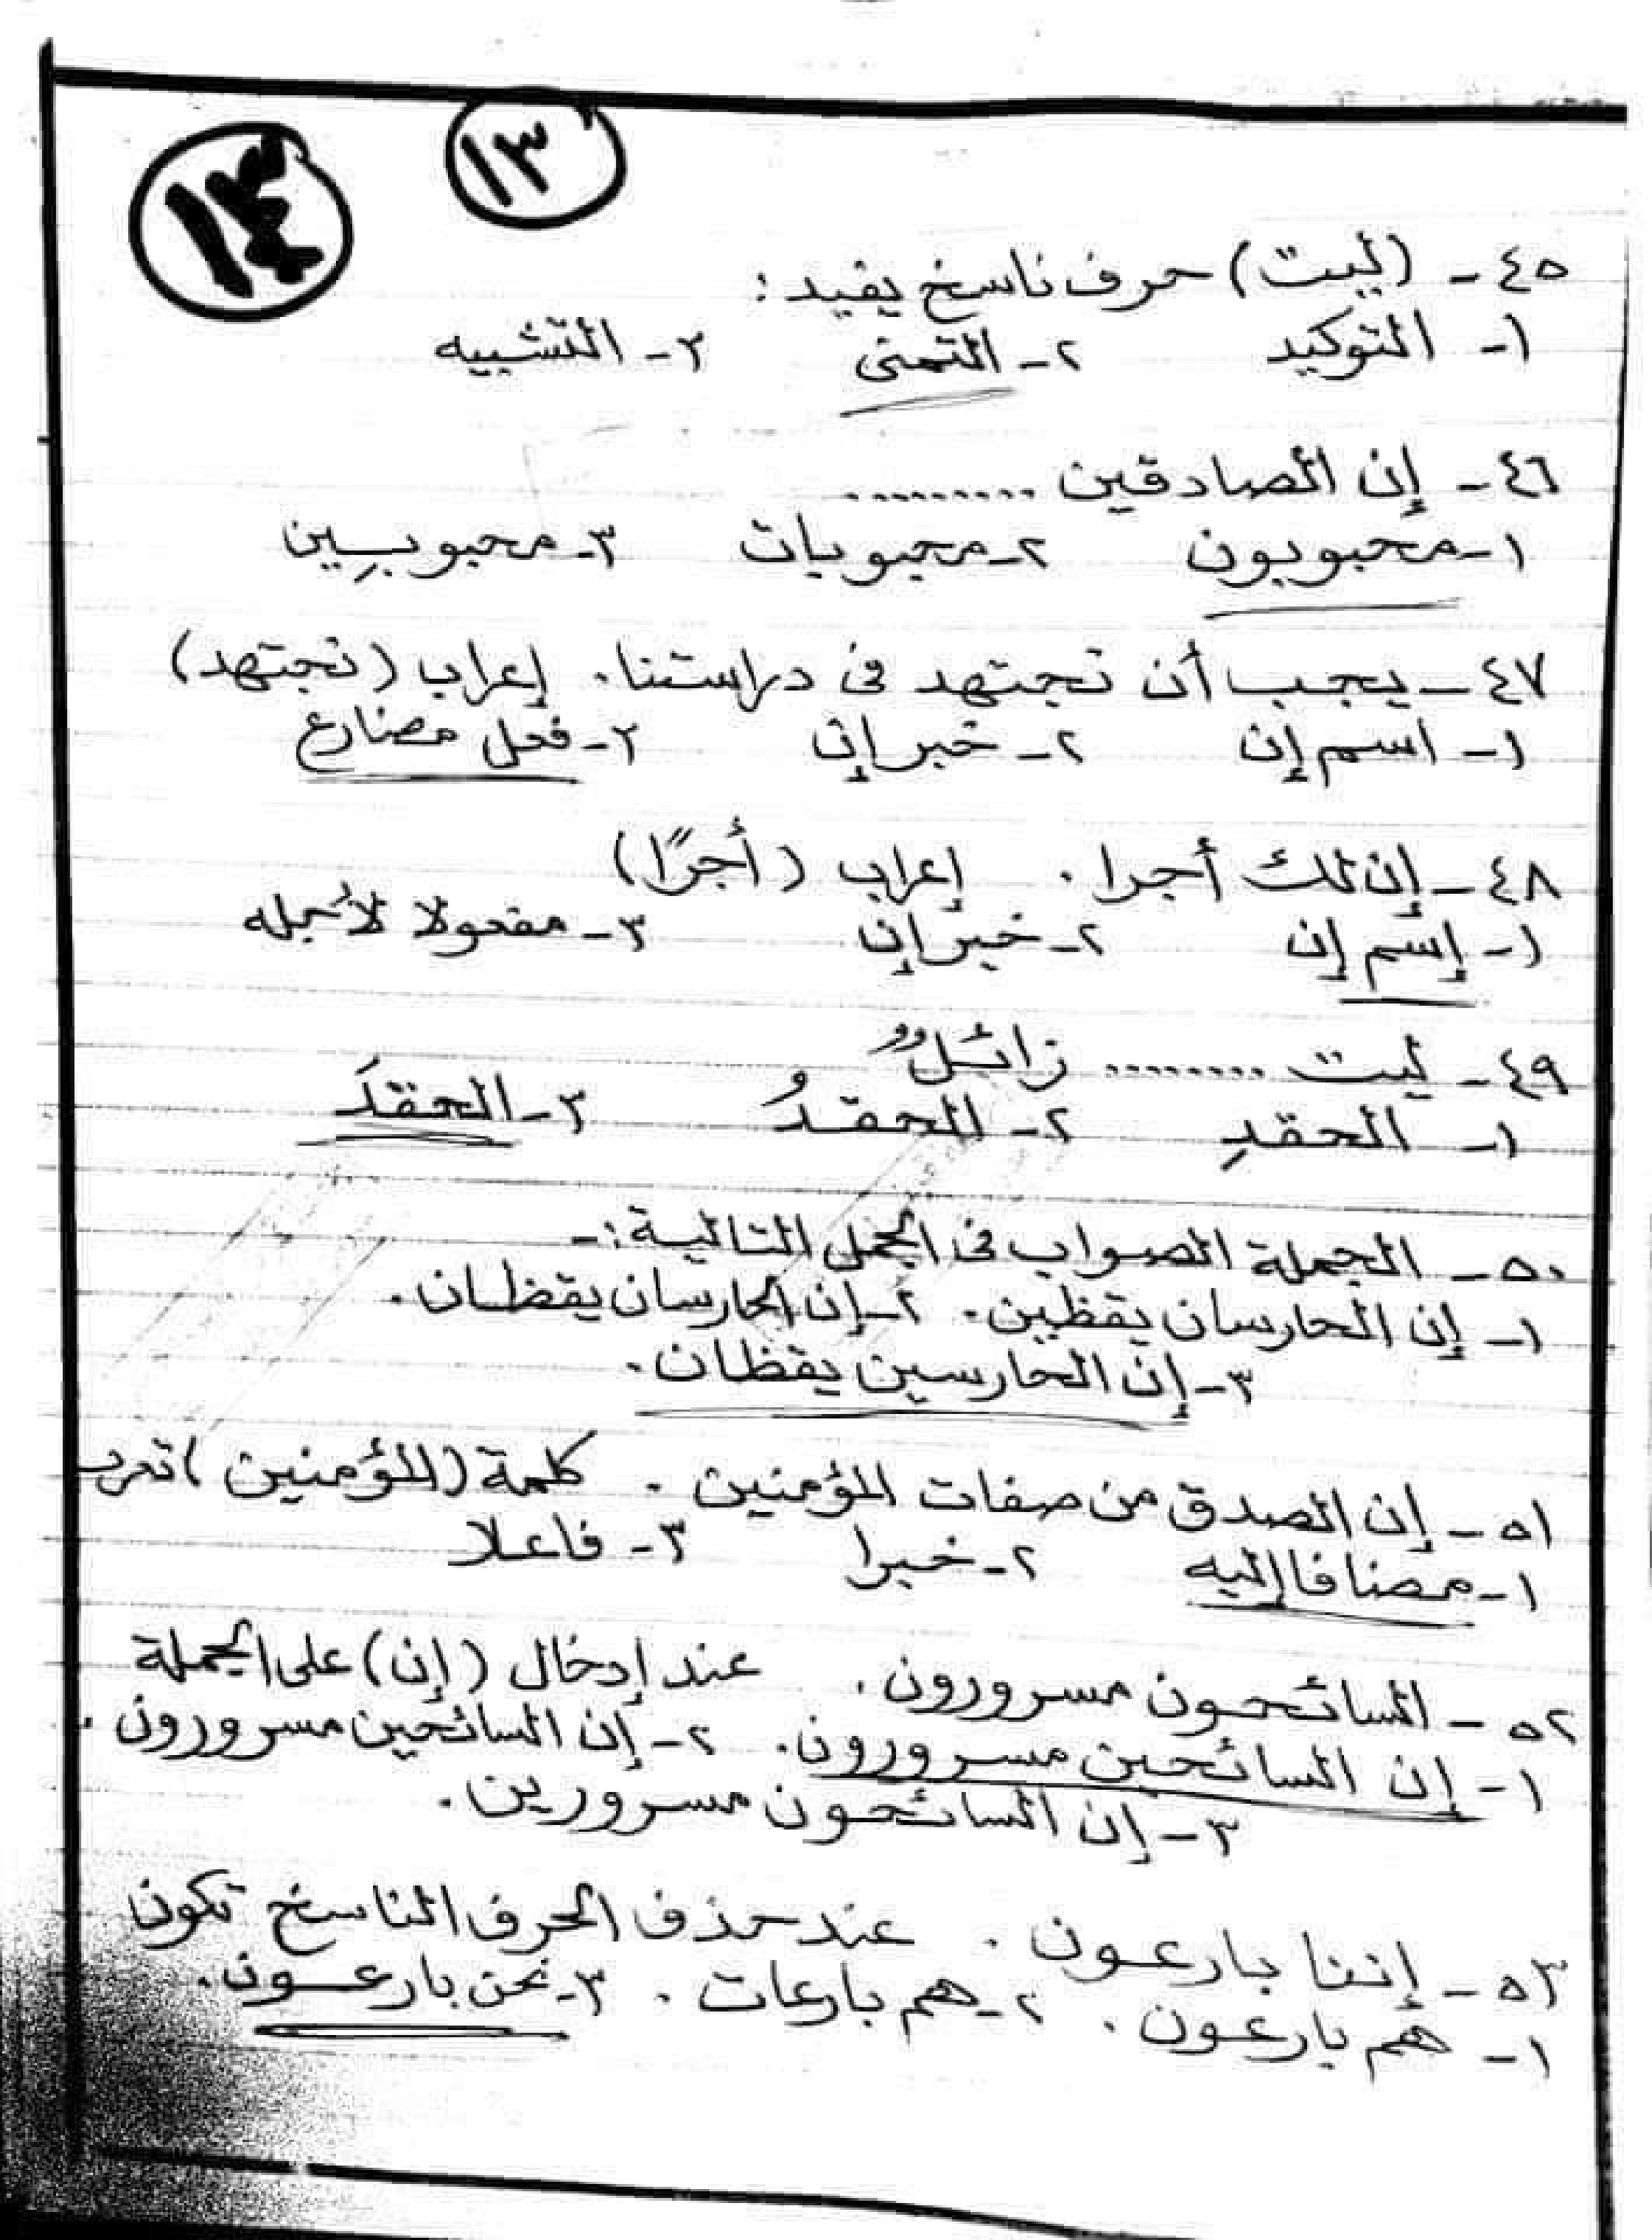 ١٣
١٣
٤٥ - (ليت) حرف ناسخ يفيد :
١- التوكيد ٢- التمنى ٣- التشبيه
٤٦ - إن الصادقين .........
١- محبوبون ٢- محبوبات ٣- محبوبين
٤٧ - يجب أن نجتهد فى دراستنا . إعراب (نجتهد)
١- اسم إن ٢- خبر إن ٣- فعل مضارع
٤٨ - إن لك أجرا . إعراب (أجرًا)
١- إسم إن ٢- خبر إن ٣- مفعولا لأجله
٤٩ - ليت ......... زائلٌ
١- الحقدِ ٢- الحقدُ ٣- الحقدَ
٥٠ - الجملة الصواب فى الجمل التالية :-
١- إن الحارسان يقظين . ٢- إن الحارسان يقظان .
٣- إن الحارسين يقظان .
٥١ - إن الصدق من صفات المؤمنين . كلمة (المؤمنين) تعرب
١- مضافا إليه ٢- خبرا ٣- فاعلا
٥٢ - السائحون مسرورون . عند إدخال (إن) على الجملة
١- إن السائحين مسرورون . ٢- إن السائحين مسرورون .
٣- إن السائحون مسرورين .
٥٣ - إننا بارعون . عند حذف الحرف الناسخ تكون
١- هم بارعون . ٢- هم بارعات . ٣- نحن بارعون .